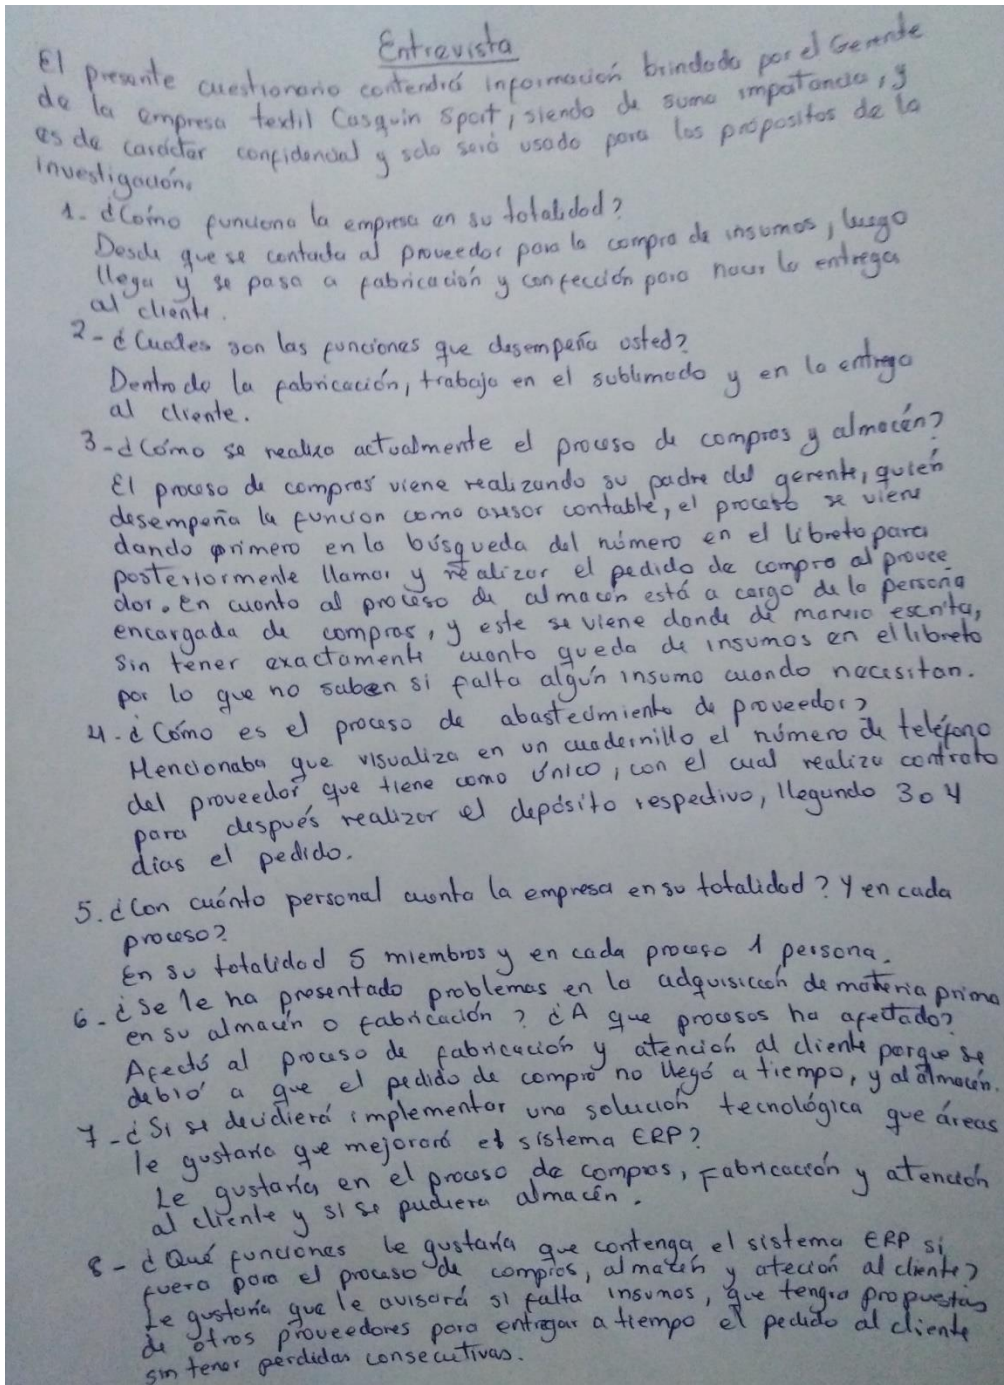 Entrevista
El presente cuestionario contendrá información brindada por el Gerente
de la empresa textil Casquin Sport, siendo de suma impotancia, y
es de carácter confidencial y solo será usado para los propositos de la
investigación.
1. ¿Cómo funciona la empresa en su totalidad?
Desde que se contacta al proveedor para la compra de insumos, luego
llega y se pasa a fabricación y confección para hacer la entrega
al cliente.
2- ¿Cuales son las funciones que desempeña usted?
Dentro de la fabricación, trabajo en el sublimado y en la entrega
al cliente.
3-¿Cómo se realiza actualmente el proceso de compras y almacén?
El proceso de compras viene realizando su padre del gerente, quién
desempeña la funcion como asesor contable, el proceso se viene
dando primero en la búsqueda del número en el libreto para
posteriormente llamar y realizar el pedido de compra al provee
dor. En cuanto al proceso de almacen está a cargo de la persona
encargada de compras, y este se viene dando de manera escrita,
sin tener exactamente cuanto queda de insumos en el libreto
por lo que no saben si falta algún insumo cuando necesitan.
4. ¿Cómo es el proceso de abastecimiento de proveedor?
Mencionaba que visualiza en un cuadernillo el número de teléfono
del proveedor que tiene como único, con el cual realiza contrato
para después realizar el depósito respectivo, llegando 3 o 4
dias el pedido.
5. ¿Con cuánto personal cuenta la empresa en su totalidad? Y en cada
proceso?
En su totalidad 5 miembros y en cada proceso 1 persona.
6- ¿Se le ha presentado problemas en la adquisición de materia prima
en su almacén o fabricación? ¿A que procesos ha afectado?
Afectó al proceso de fabricación y atención al cliente porque se
debió a que el pedido de compra no llegó a tiempo, y al almacén.
7-¿Si se decidiera implementar una solución tecnológica que áreas
le gustaria que mejorará el sistema ERP?
Le gustaría en el proceso de compras, fabricación y atención
al cliente y si se pudiera almacén.
8- ¿Qué funciones le gustaría que contenga el sistema ERP si
fuera para el proceso de compras, almacén y ateción al cliente?
Le gustaria que le avisará si falta insumos, que tengra propuestas
de otros proveedores para entregar a tiempo el pedido al cliente
sin tener perdidas consecutivas.